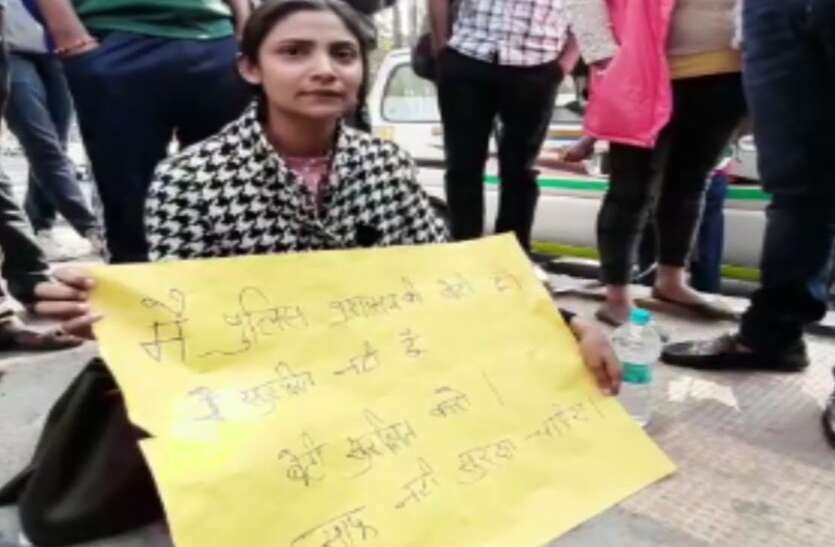 मै पुलिस प्रशासन की बेटी हूं
मैं सुरक्षित नही हैं
बेटी सुरक्षित करो ।
साफ नही सुरक्षा चाहिए।